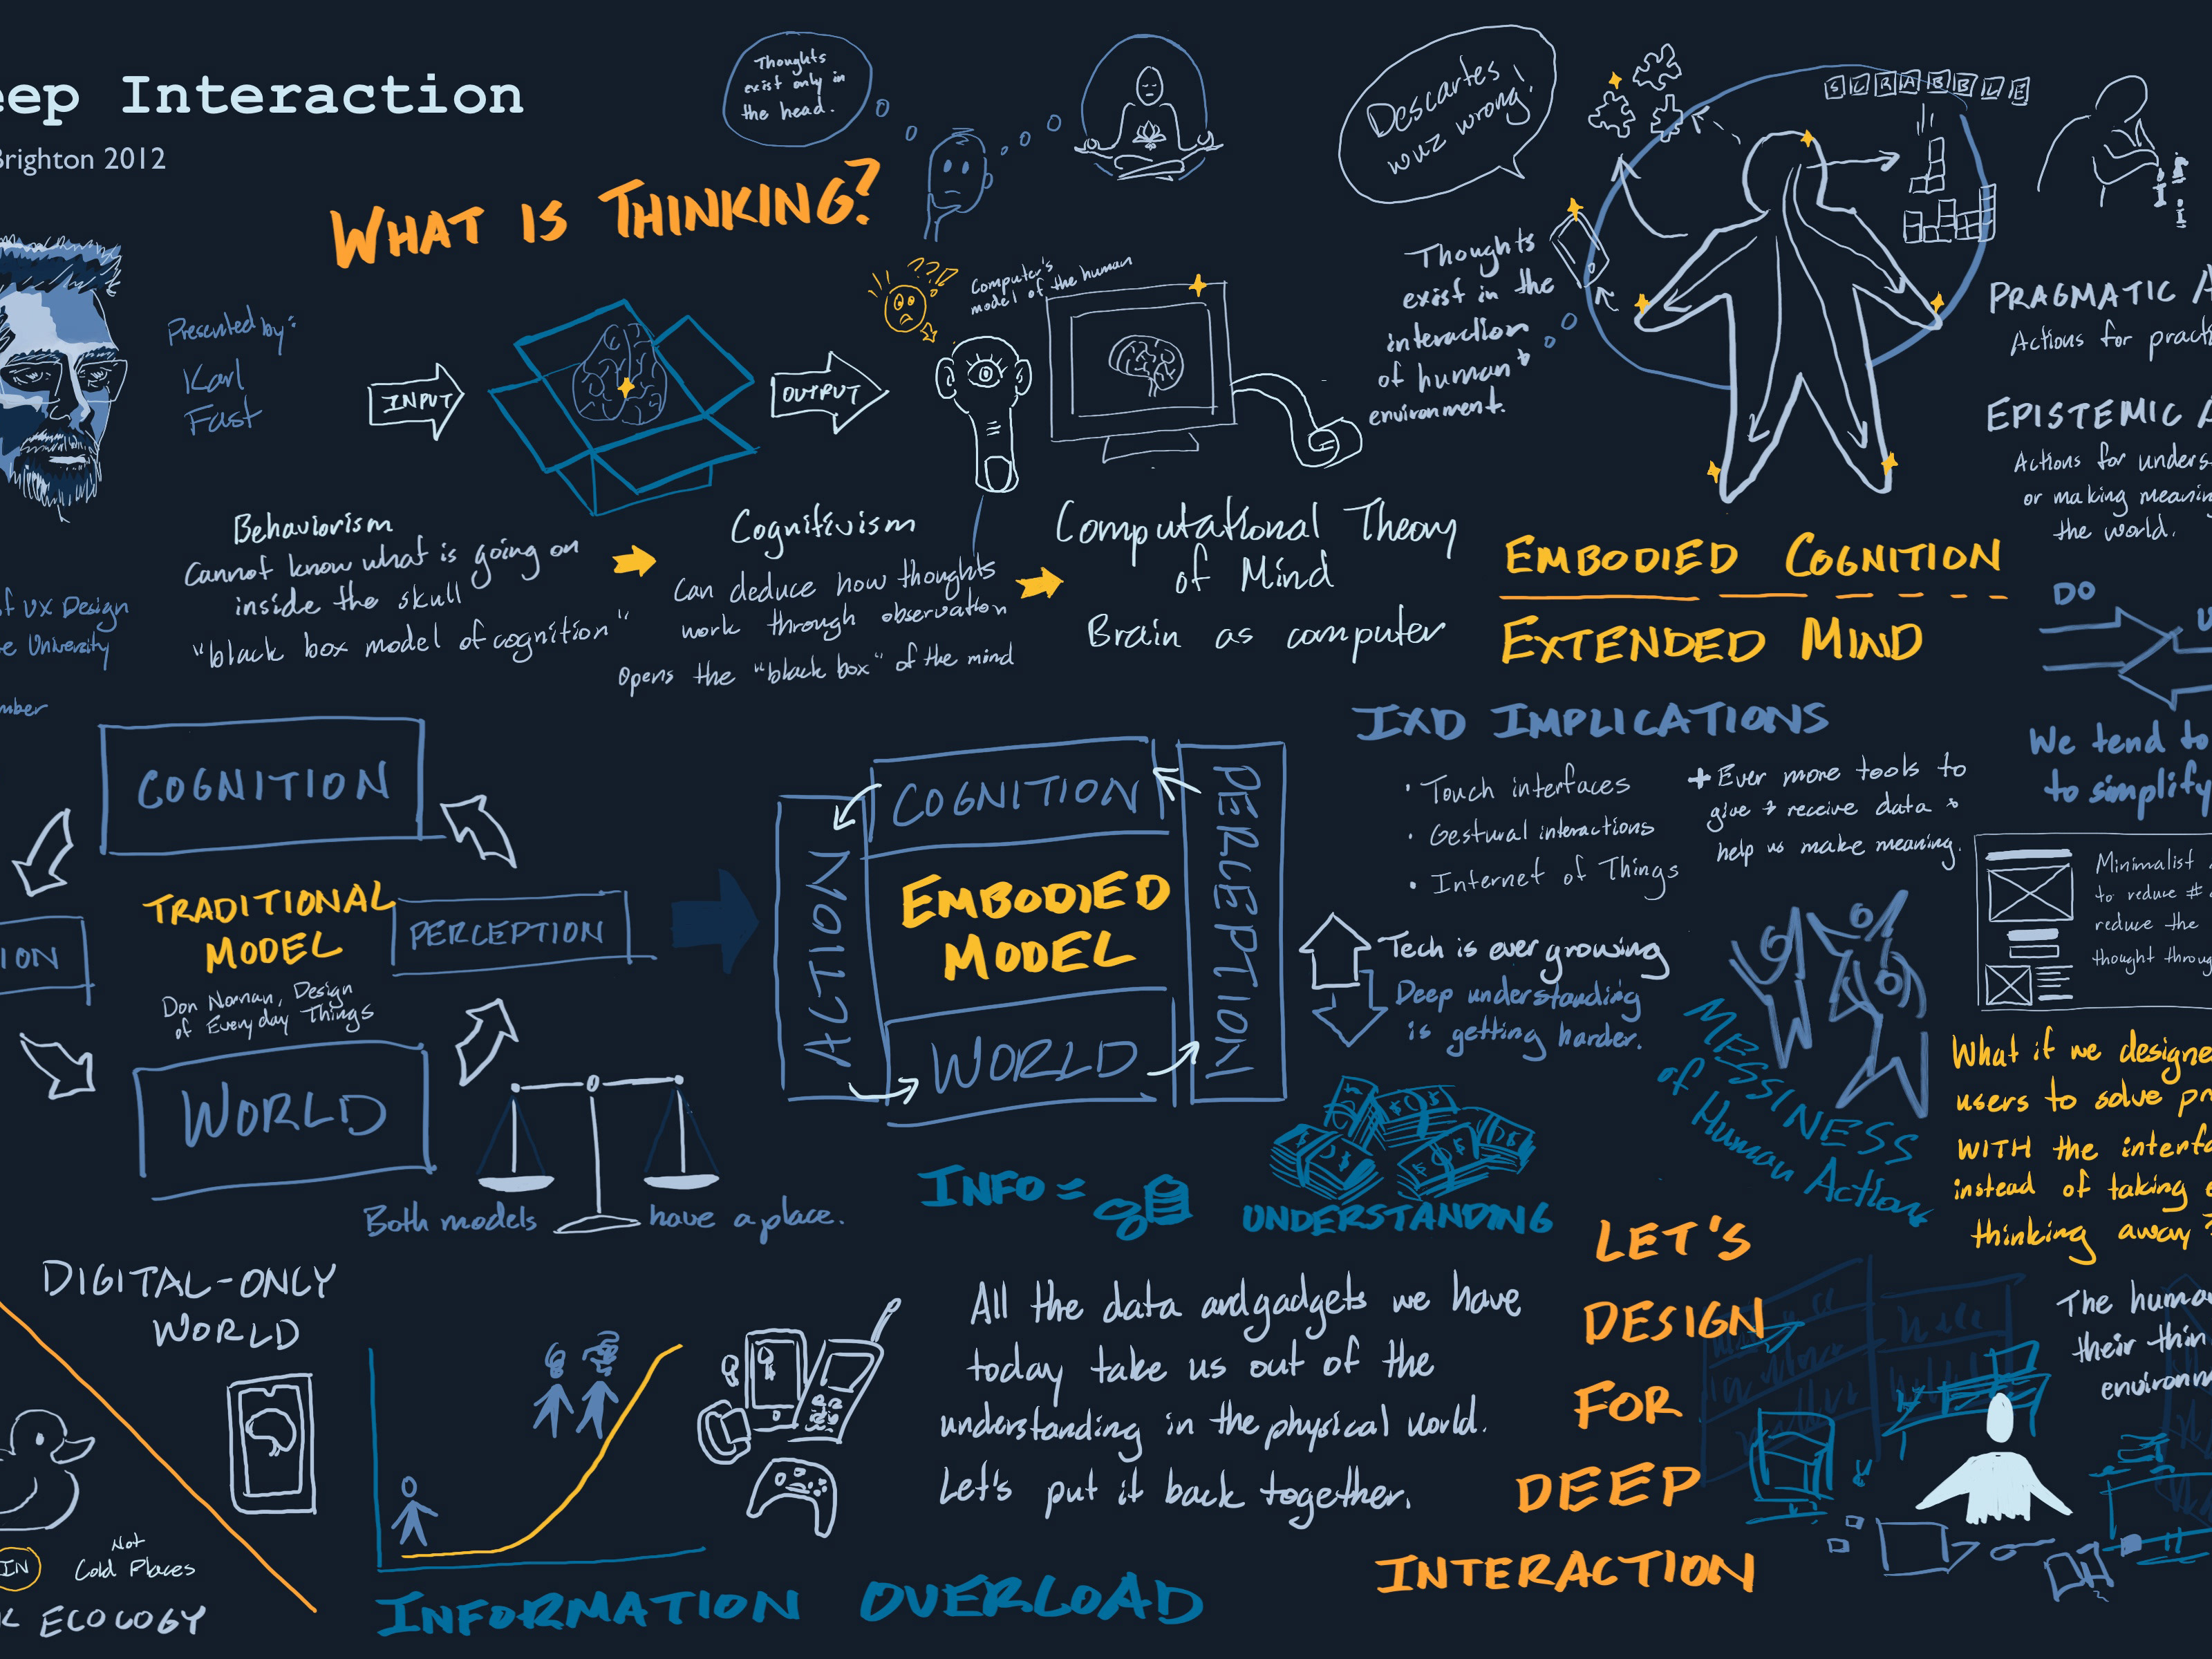 eep Interaction
Brighton 2012
Presented by:
Karl
Fast
of UX Design
e University
mber
WHAT IS THINKING?
Thoughts
exist only in
the head.
INPUT
OUTPUT
Computer's
model of the human
Behaviorism
Cannot know what is going on
inside the skull
"black box model of cognition"
Cognitivism
Can deduce how thoughts
work through observation
Opens the "black box" of the mind
Computational Theory
of Mind
Brain as computer
Descartes
wuz wrong!
Thoughts
exist in the
interaction
of human +
environment.
SCRABBLE
EMBODIED COGNITION
EXTENDED MIND
PRAGMATIC A
Actions for pract
EPISTEMIC A
Actions for unders
or making meaning
the world.
DO
U
We tend to
to simplify
COGNITION
PERCEPTION
WORLD
ION
TRADITIONAL
MODEL
Don Norman, Design
of Everyday Things
COGNITION
PERCEPTION
WORLD
ACTION
EMBODIED
MODEL
Both models have a place.
IXD IMPLICATIONS
• Touch interfaces
• Gestural interactions
• Internet of Things
+ Ever more tools to
give + receive data +
help us make meaning.
Tech is ever growing
Deep understanding
is getting harder.
MESSINESS
of Human Action
Minimalist
to reduce #
reduce the
thought throug
What if we designe
users to solve pr
WITH the interfa
instead of taking
thinking away?
INFO =
UNDERSTANDING
DIGITAL-ONLY
WORLD
IN
Not
Cold Places
ECOLOGY
INFORMATION OVERLOAD
All the data and gadgets we have
today take us out of the
understanding in the physical world.
Let's put it back together.
LET'S
DESIGN
FOR
DEEP
INTERACTION
The huma
their thin
environm